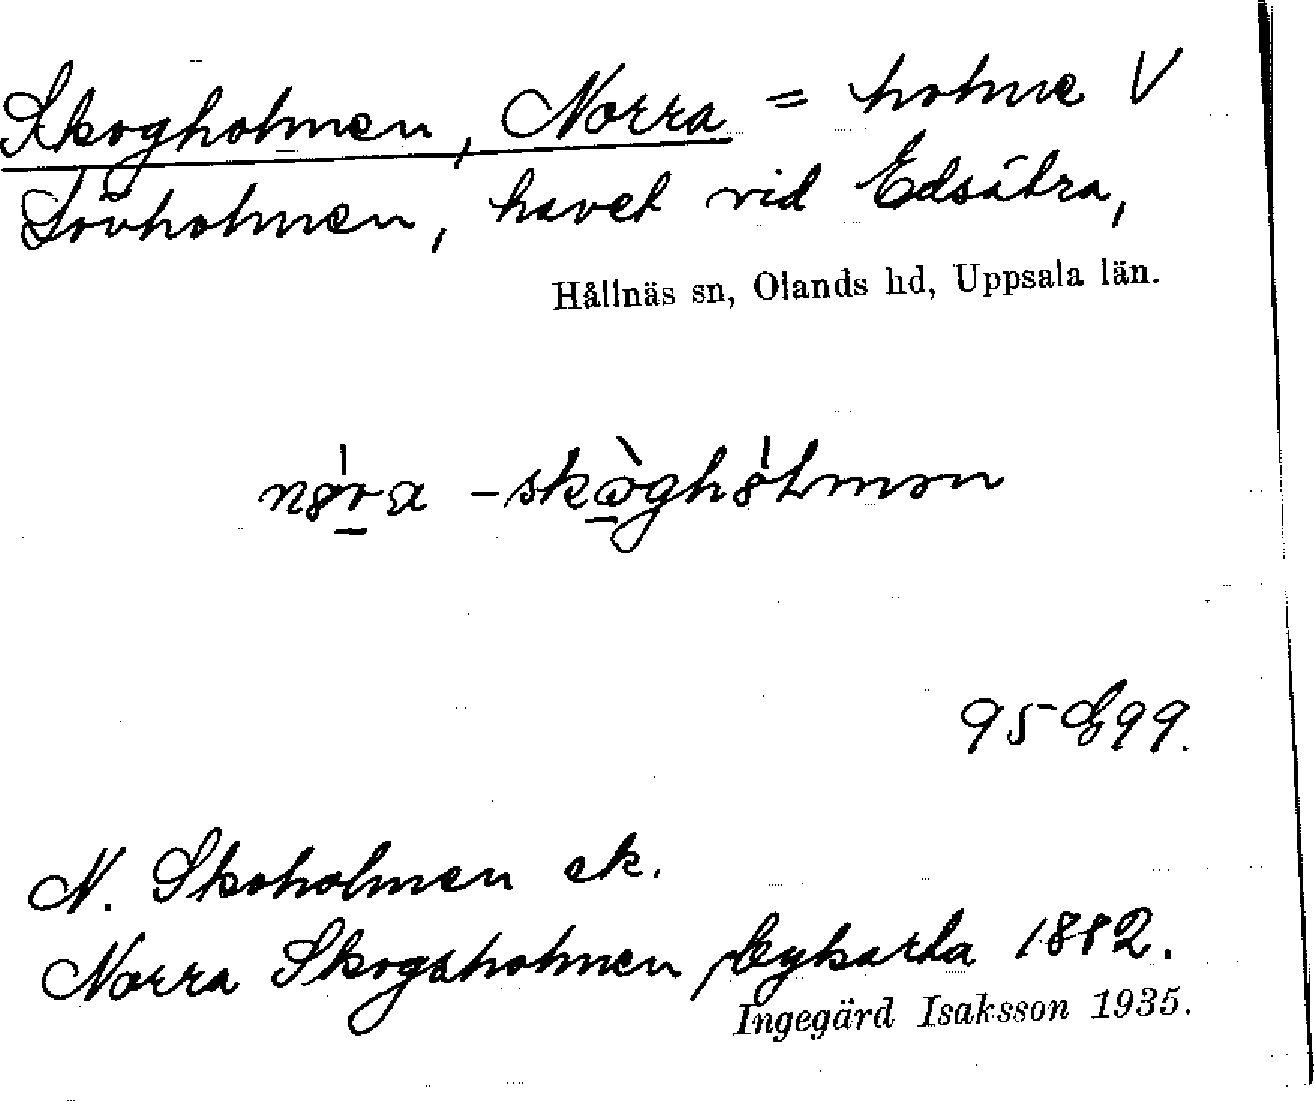 Skogholmen, Norra = holme V
Lövholmen, havet vid Edsätra,
Hållnäs sn, Olands hd, Uppsala län.
95 E 99.
N. Skoholmen ek.
Norra Skogsholmen, bykarta 1882.
Ingegärd Isaksson 1935.